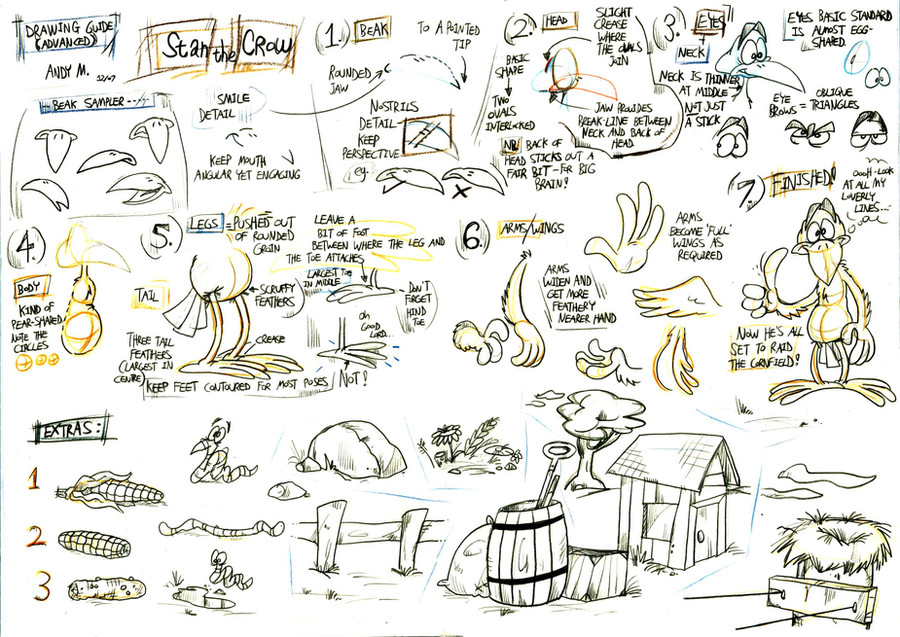 DRAWING GUIDE
(ADVANCED)
ANDY M.
12/07
Stan the CROW
BEAK SAMPLER
SMILE
DETAIL
KEEP MOUTH
ANGULAR YET ENGAGING
(1.) BEAK
TO A POINTED
TIP
ROUNDED
JAW
NOSTRILS
DETAIL
KEEP
PERSPECTIVE
eg.
(2.) HEAD
BASIC
SHAPE
=
TWO
OVALS
INTERLOCKED
SLIGHT
CREASE
WHERE
THE OVALS
JOIN
JAW PROVIDES
BREAK-LINE BETWEEN
NECK AND BACK OF
HEAD
NB BACK OF
HEAD STICKS OUT A
FAIR BIT - FOR BIG
BRAIN!
3. EYES
+
NECK
NECK IS THINNER
AT MIDDLE
NOT JUST
A STICK
EYES BASIC STANDARD
IS ALMOST EGG-
SHAPED.
EYE
BROWS
=
OBLIQUE
TRIANGLES
(4.)
BODY
KIND OF
PEAR-SHAPED
NOTE THE
CIRCLES
5. LEGS = PUSHED OUT
OF ROUNDED
GROIN
TAIL
SCRUFFY
FEATHERS
THREE TAIL
FEATHERS
(LARGEST IN
CENTRE)
CREASE
KEEP FEET CONTOURED FOR MOST POSES
LEAVE A
BIT OF FOOT
BETWEEN WHERE THE LEG AND
THE TOE ATTACHES
LARGEST TOE
IN MIDDLE
DON'T
FORGET
HIND
TOE
oh
GOOD
LORD...
NOT!
6. ARMS/WINGS
ARMS
WIDEN AND
GET MORE
FEATHERY
NEARER HAND
ARMS
BECOME 'FULL'
WINGS AS
REQUIRED
(7) FINISHED!
OOOH - LOOK
AT ALL MY
LUVERLY
LINES...
NOW HE'S ALL
SET TO RAID
THE CORNFIELD!
EXTRAS:
1
2
3